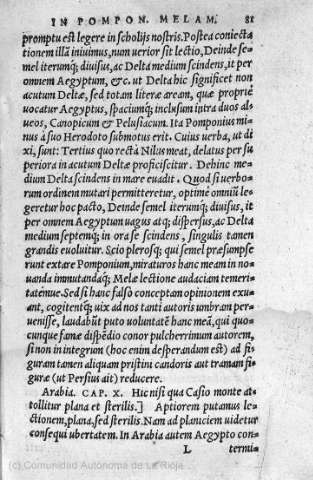 IN POMPON. MELAM. 81
promptu est legere in scholijs nostris. Postea coniecta
tionem illā iniuimus, num uerior sit lectio, Deinde se-
mel iterumq́; diuisus, ac Delta medium scindens, it per
omnem Aegyptum, &c. ut Delta hic significet non
acutum Deltae, sed totam literae aream, quae propriè
uocatur Aegyptus, spaciumq́; inclusum intra duos al-
ueos, Canopicum & Pelusiacum. Ita Pomponius mi-
nus à suo Herodoto submotus erit. Cuius uerba, ut di
xi, sunt: Tertius quo recta Nilus meat, delatus per su
periora in acutum Deltae proficiscitur. Dehinc me-
dium Delta scindens in mare euadit. Quod si uerbo-
rum ordinem mutari permitteretur, optimè omniū le-
geretur hoc pacto, Deinde semel iterumq́; diuisus, it
per omnem Aegyptum uagus atq; dispersus, ac Delta
medium septemq́; in ora se scindens, singulis tamen
grandis euoluitur. Scio plerosq;, qui semel praesumpse
runt extare Pomponium, miraturos hanc meam in no-
uanda immutandaq́; Melae lectione audaciam temeri-
tatemue. Sed si hanc falso conceptam opinionem exu-
ant, cogitentq́; uix ad nos tanti autoris umbram per-
uenisse, laudabūt puto uoluntatē hanc meā, qui quo-
cunque famae dispēdio conor pulcherrimum autorem,
si non in integrum (hoc enim desperandum est) ad fi-
guram tanen aliquam pristini candoris aut tramam fi-
gurae (ut Persius ait) reducere.
Arabia. CAP. X. Hic nisi qua Casio monte at-
tollitur plana et sterilis.] Aptiorem putamus le-
ctionem, plana, sed sterilis. Nam ad planiciem uidetur
consequi ubertatem. In Arabia autem Aegypto con-
L termi-
(c) Comunidad Autónoma de La Rioja